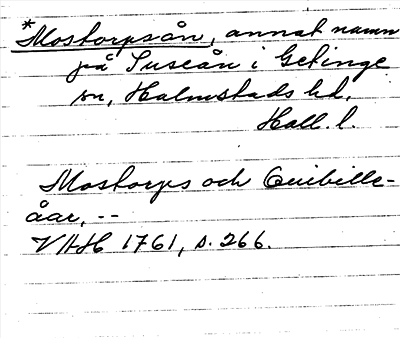 *Mostorpsån, annat namn
på Suseån i Getinge
sn, Halmstads hd,
Hall. l.
Mostorps och Quibille-
åar, --
VHH 1761, s. 266.